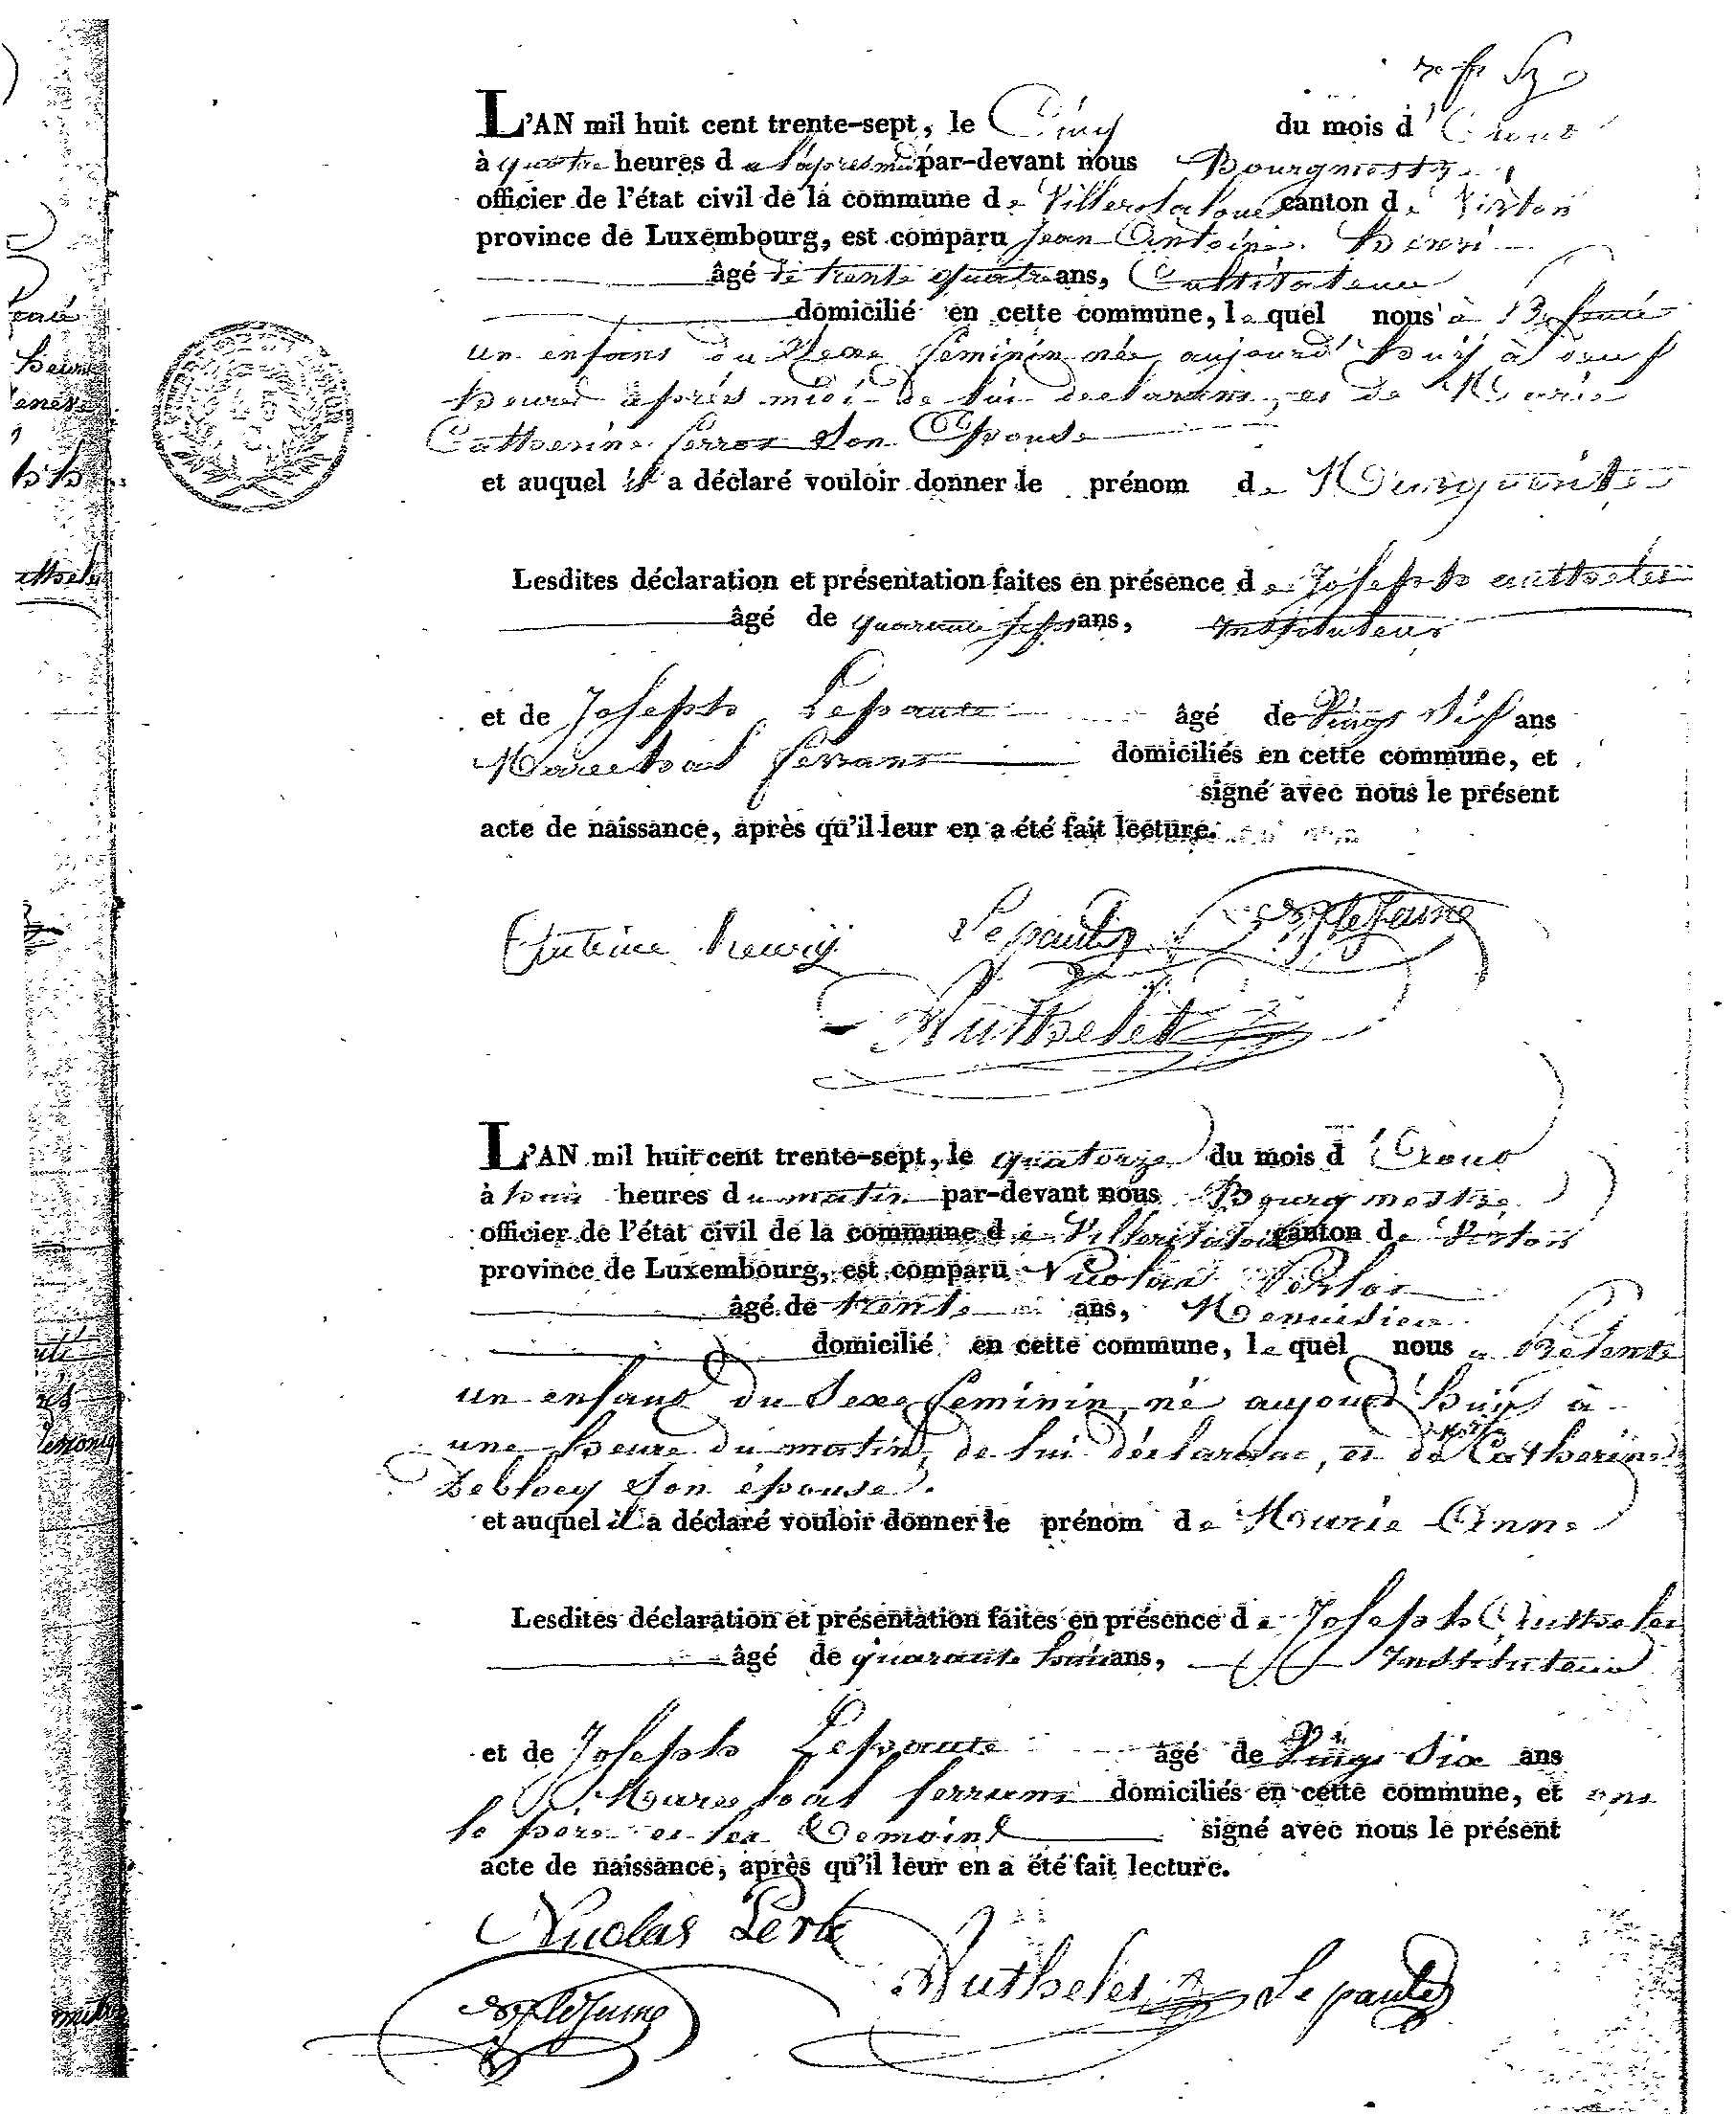 L'AN mil huit cent trente-sept, le Cinq du mois d' Aout
à quatre heures de l'après midi par-devant nous Bourgmestre
officier de l'état civil de la commune de Villers la loue canton de Virton
province de Luxembourg, est comparu Jean Antoine henri
âgé de trente quatre ans, Cultivateur
domicilié en cette commune, lequel nous à Présenté
un enfans du Sexe feminin née aujourd'huij à
heures après midi de lui declarant, et de Marie
Catherine ferrot Son Epouse
et auquel il a déclaré vouloir donner le prénom de Marguerite
Lesdites déclaration et présentation faites en présence de Joseph authelet
âgé de quarante sept ans, Instituteur
et de Joseph Lepaute âgé de Vingt Six ans
Marechal ferrant domiciliés en cette commune, et
signé avec nous le présent
acte de naissance, après qu'il leur en a été fait lecture.
Antoine henrij Lepaute LeJeune
Authelet
L'AN mil huit cent trente-sept, le quatorze du mois d'Aout
à huit heures du matin par-devant nous Bourgmestre
officier de l'état civil de la commune de Villers la loue canton de Virton
province de Luxembourg, est comparu Nicolas Perlot
âgé de trente ans, Menuisier
domicilié en cette commune, lequel nous a Présenté
un enfant du Sexe feminin, né aujourd'huij à
une heure du matin, de lui déclarant, et de Catherine
Son épouse.
et auquel il a déclaré vouloir donner le prénom de Marie Anne
Lesdites déclaration et présentation faites en présence de Joseph Authelet
âgé de quarante huit ans, Instituteur
et de Joseph Lepaute âgé de Vingt Six ans
Marechal ferrant domiciliés en cette commune, et ont
le pere et les temoins signé avec nous le présent
acte de naissance, après qu'il leur en a été fait lecture.
Nicolas Perlot
Authelet Lepaute
LeJeune